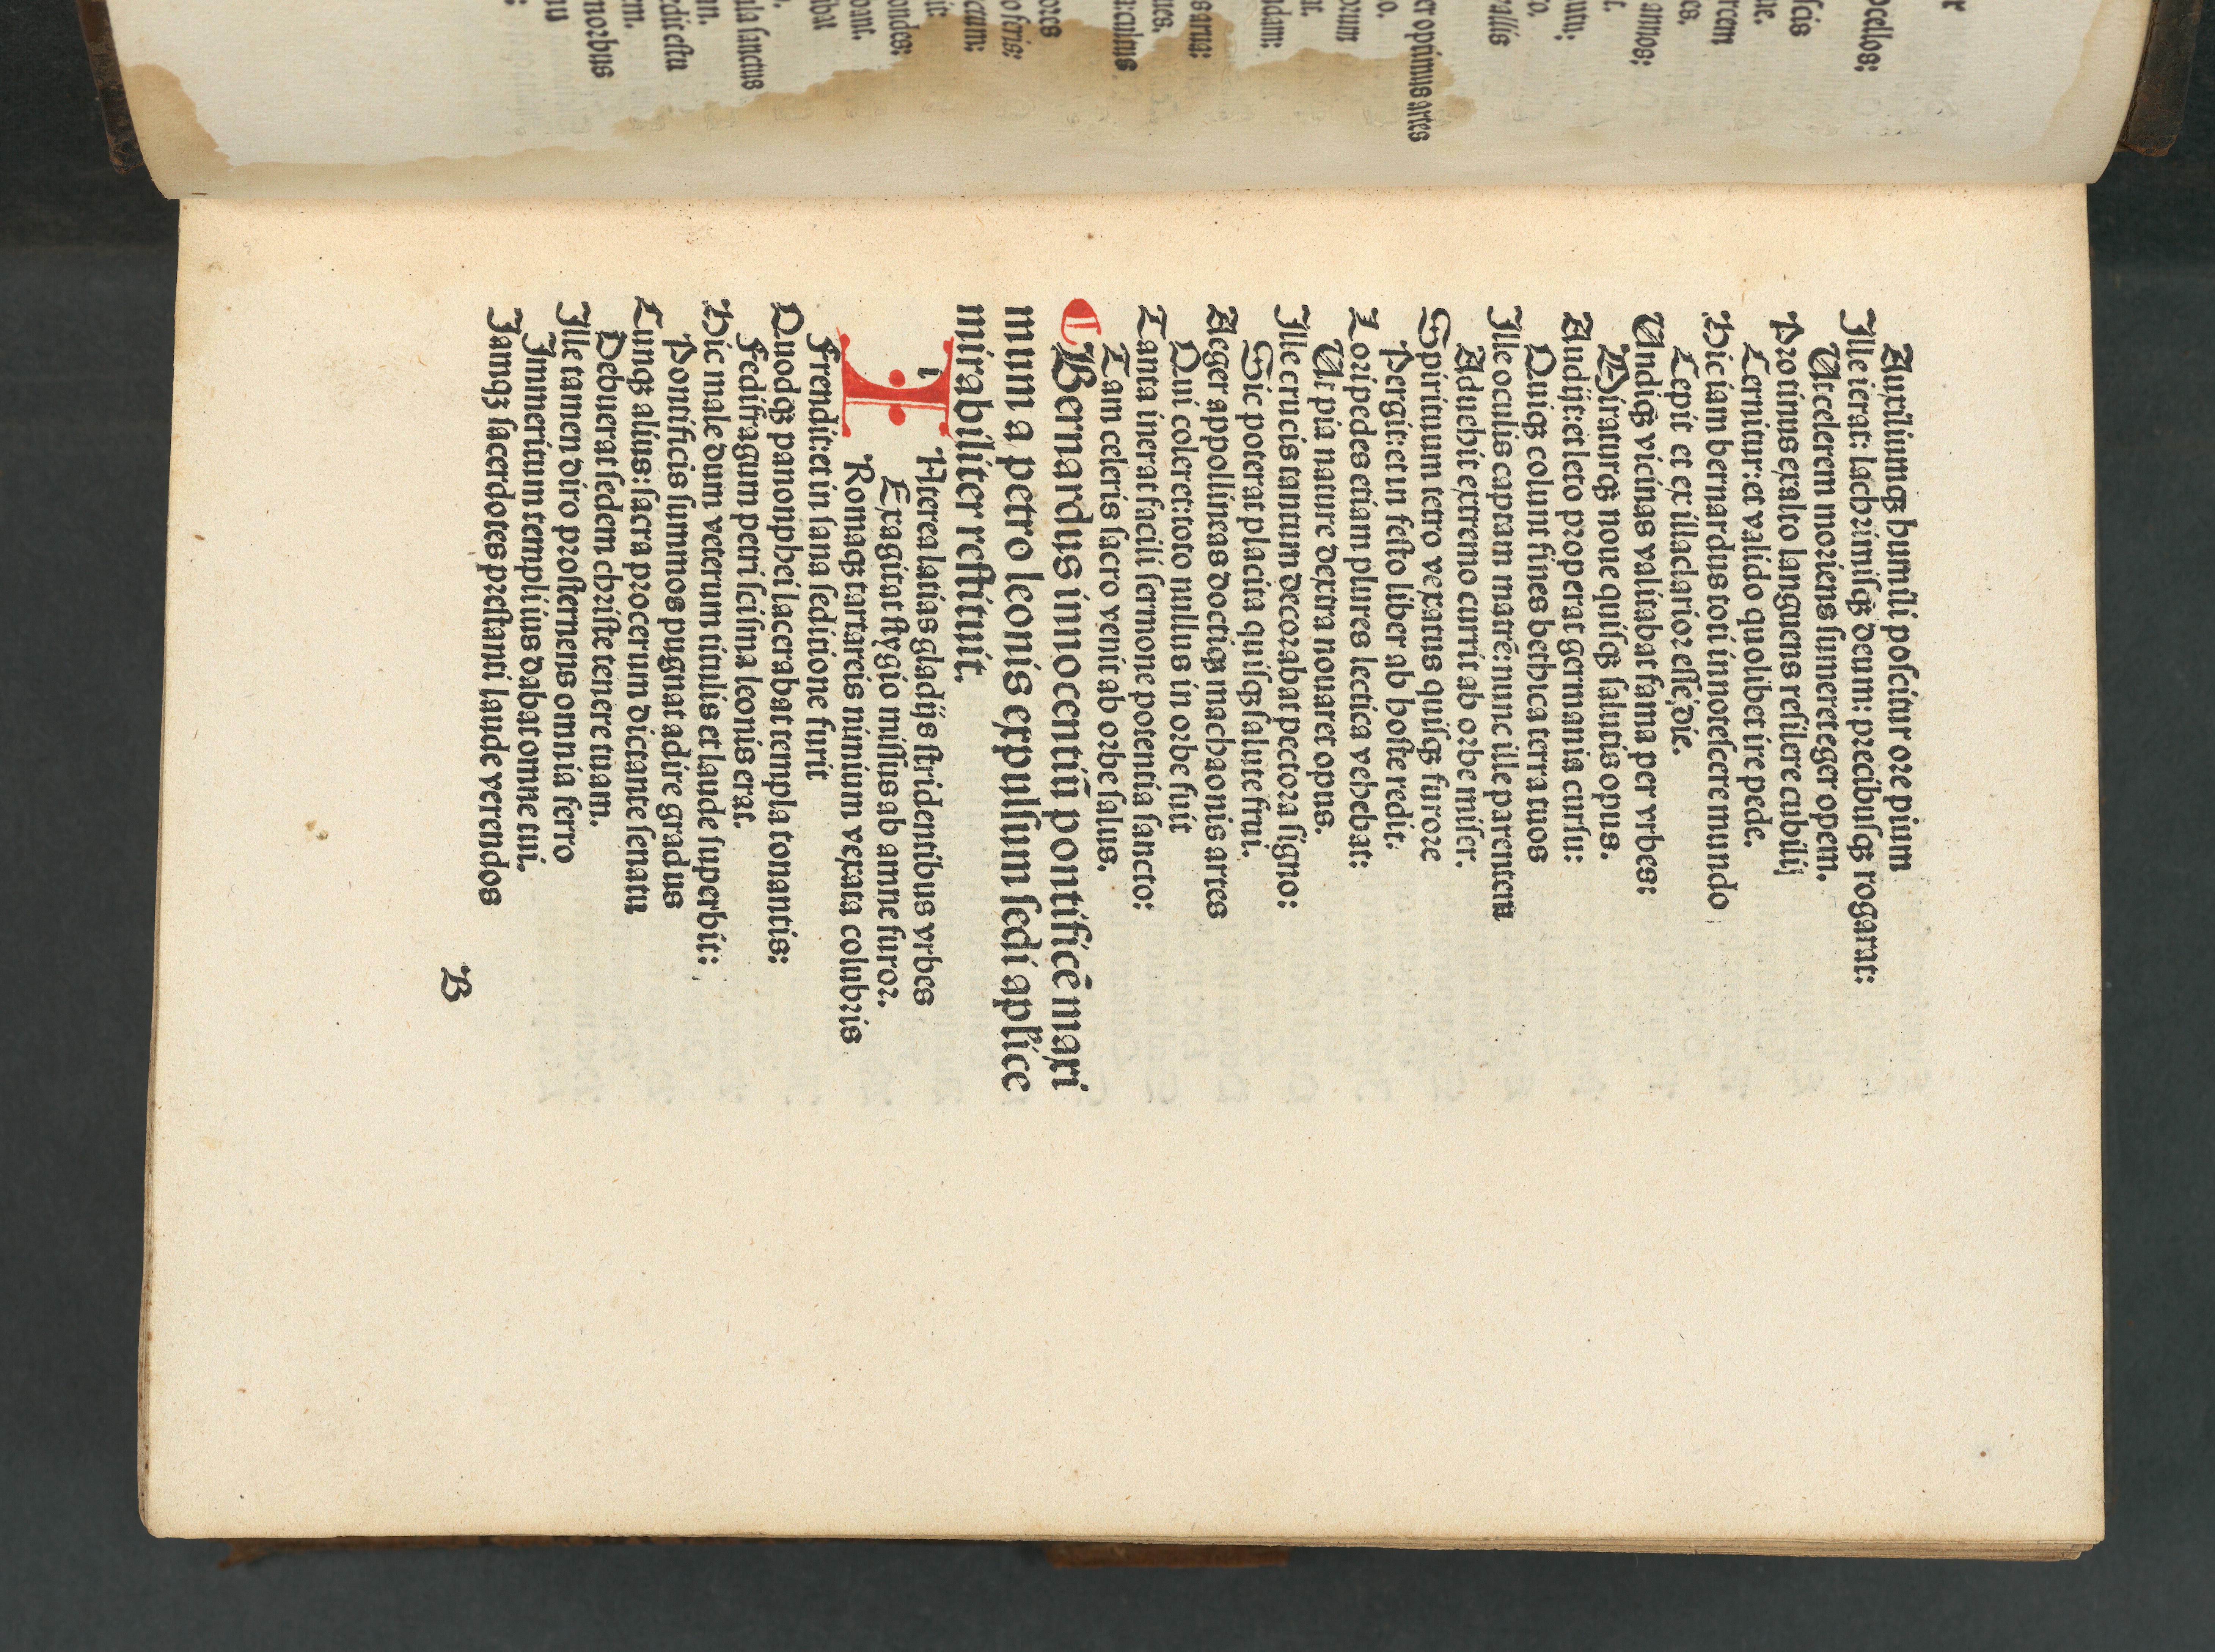 Auxiliumqꝫ humili poscitur ore pium
Ille ierat: lachrimisqꝫ deum: precibusqꝫ rogarat:
Ut celerem moriens sumeret eger opem.
Protinus exalto languens resilere cubilij
Cernitur: et valido quolibet ire pede.
Hic iam bernardus toti innotescere mundo
Cepit et ex illa clarior esse die.
Undiqꝫ vicinas validabat fama per vrbes:
Miraturqꝫ noue quisqꝫ salutis opus.
Audijt: et leto properat germania cursu:
Quiqꝫ colunt fines hethica terra tuos
Ille oculis captam matrē: nunc ille parentem
Aduehit extremo currit ab orbe miser.
Spirituum tetro vexatus quisqꝫ furore
Pergit: et in festo liber ab hoste redit.
Loripedes etiam plures lectica vehebat:
Ut pia nature dextra nouaret opus.
Ille crucis tantum decorabat pectora signo:
Sic poterat placita quisqꝫ salute frui.
Aeger appollineas doctiqꝫ machaonis artes
Qui coleret: toto nullus in orbe fuit
Tanta inerat facili sermone potentia sancto:
Tam celeris sacro venit ab orbe salus.
¶ Bernardus innocentiū pontificē maxi
mum a petro leonis expulsum sedi aplice
mirabiliter restituit.
I Nterea latias gladijs stridentibus vrbes
Exagitat stygio missus ab amne furor.
Romaqꝫ tartareis nimium vexata colubris
Frendit: et in sana seditione furit
Quodqꝫ panonphei lacerabat templa tonantis:
Fedifragum petri scisma leonis erat.
Hic male dum veterum titulis et laude superbit:
Pontificis summos pugnat adire gradus
Cunqꝫ alius: sacra procerum dictante senatu
Debuerat sedem christe tenere tuam.
Ille tamen diro prosternens omnia ferro
Immeritum templi ius dabat omne tui.
Jamqꝫ sacerdotes prestanti laude verendos
B